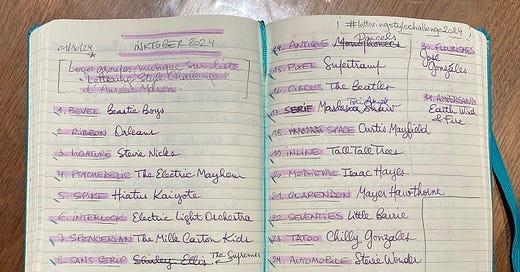 01/10/24
INKTOBER 2024
Logo groupes musique sur liste
Lettering Style Challenge
d'Aurélie Maron
1. BEVEL Beastie Boys
2. RIBBON Orleans
3. LIGATURE Stevie Nicks
4. PSYCHEDELIC The Electric Mayhem
5. SPIKE Hiatus Kaiyote
6. INTERLOCK Electric Light Orchestra
7. SPENCERIAN The Milk Carton Kids
8. SANS SERIF Shirley Ellis The Supremes
! #letteringstylechallenge2024 !
14. ANTIQUE Parcels
15. PIXEL Supertramp
16. CIRCUS The Beatles
17. SERIF Marlena Shaw
18. SPACE Curtis Mayfield
19. INLINE Tall Tall Trees
20. MEDIEVAL Isaac Hayes
21. CLARENDON Mayer Hawthorne
22. SEVENTIES Little Barrie
23. TATOO Chilly Gonzales
24. AUTOMOBILE Stevie Wonder
30. FLOURISHES
José
González
31. AMPERSAND
Earth Wind
& Fire